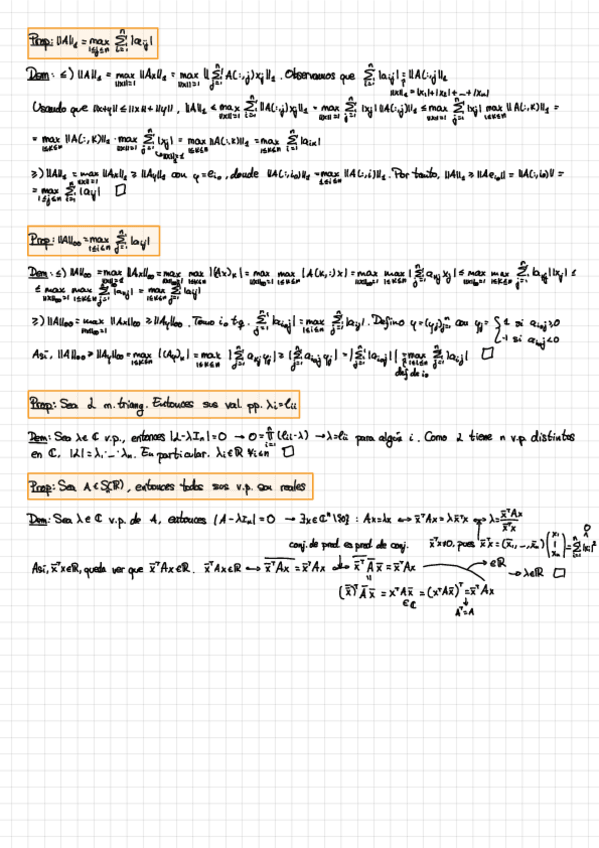 Prop: ||A||₁ = max_{1≤j≤n} Σ_{i=1}^n |a_ij|
Dem: ≤) ||A||₁ = max_{||x||=1} ||Ax||₁ = max_{||x||=1} ||Σ_{j=1}^n A(:,j)x_j||₁. Observamos que Σ_{i=1}^n |a_ij| = ||A(:,j)||₁
||x||₁ = |x₁|+|x₂|+...+|x_n|
Usando que ||x+y|| ≤ ||x||+||y||, ||A||₁ ≤ max_{||x||=1} Σ_{j=1}^n ||A(:,j)x_j||₁ = max_{||x||=1} Σ_{j=1}^n |x_j| ||A(:,j)||₁ ≤ max_{||x||=1} Σ_{j=1}^n |x_j| max_{1≤k≤n} ||A(:,k)||₁ =
= max_{1≤k≤n} ||A(:,k)||₁ · max_{||x||=1} Σ_{j=1}^n |x_j| = max_{1≤k≤n} ||A(:,k)||₁ = max_{1≤k≤n} Σ_{i=1}^n |a_ik|
||x||₁=1
≥) ||A||₁ = max_{||x||=1} ||Ax||₁ ≥ ||Ay||₁ con y = e_{i₀}, donde ||A(:,i₀)||₁ = max_{1≤i≤n} ||A(:,i)||₁. Por tanto, ||A||₁ ≥ ||Ae_{i₀}|| = ||A(:,i₀)|| =
= max_{1≤j≤n} Σ_{i=1}^n |a_ij| □
Prop: ||A||∞ = max_{1≤i≤n} Σ_{j=1}^n |a_ij|
Dem: ≤) ||A||∞ = max_{||x||∞=1} ||Ax||∞ = max_{||x||∞=1} max_{1≤k≤n} |(Ax)_k| = max_{||x||∞=1} max_{1≤k≤n} |A(k,:)x| = max_{||x||∞=1} max_{1≤k≤n} |Σ_{j=1}^n a_kj x_j| ≤ max_{||x||∞=1} max_{1≤k≤n} Σ_{j=1}^n |a_kj||x_j| ≤
≤ max_{||x||∞=1} max_{1≤k≤n} Σ_{j=1}^n |a_kj| = max_{1≤i≤n} Σ_{j=1}^n |a_ij|
≥) ||A||∞ = max_{||x||∞=1} ||Ax||∞ ≥ ||Ay||∞. Tomo i₀ t.q. Σ_{j=1}^n |a_{i₀j}| = max_{1≤i≤n} Σ_{j=1}^n |a_ij|. Defino y = (y_j)_{j=1}^n con y_j = { 1 si a_{i₀j} ≥ 0
-1 si a_{i₀j} < 0
Así, ||A||∞ ≥ ||Ay||∞ = max_{1≤k≤n} |(Ay)_k| = max_{1≤k≤n} |Σ_{j=1}^n a_kj y_j| ≥ |Σ_{j=1}^n a_{i₀j} y_j| = |Σ_{j=1}^n |a_{i₀j}|| = max_{1≤i≤n} Σ_{j=1}^n |a_ij| □
def de i₀
Prop: Sea L m. triang. Entonces sus val. pp. λi = lii
Dem: Sea λ ∈ ℂ v.p., entonces |L-λIn| = 0 → 0 = Π_{i=1}^n (lii-λ) → λ = lii para algún i. Como L tiene n v.p distintos
en ℂ, |L| = λ₁·...·λn. En particular, λi ∈ ℝ ∀i≤n □
Prop: Sea A ∈ S(ℝ), entonces todos sus v.p. son reales
Dem: Sea λ ∈ ℂ v.p. de A, entonces |A-λIn| = 0 → ∃x ∈ ℂⁿ\{0} : Ax = λx ↔ x̄ᵀAx = λx̄ᵀx ↔ λ = x̄ᵀAx / x̄ᵀx
conj. de prod es prod de conj. x̄ᵀx≠0, pues x̄ᵀx = (x̄₁,...,x̄n)(x₁ ⋮ xn) = Σ_{i=1}^n |xi|²
Así, x̄ᵀx ∈ ℝ, queda ver que x̄ᵀAx ∈ ℝ. x̄ᵀAx ∈ ℝ ↔ \overline{x̄ᵀAx} = x̄ᵀAx ↔ \overline{x̄ᵀ}Āx̄ = x̄ᵀAx → ∈ℝ → λ∈ℝ □
(x̄̄)ᵀĀx̄ = xᵀAx̄ = (xᵀAx̄)ᵀ = x̄ᵀAx
∈ℂ Aᵀ=A